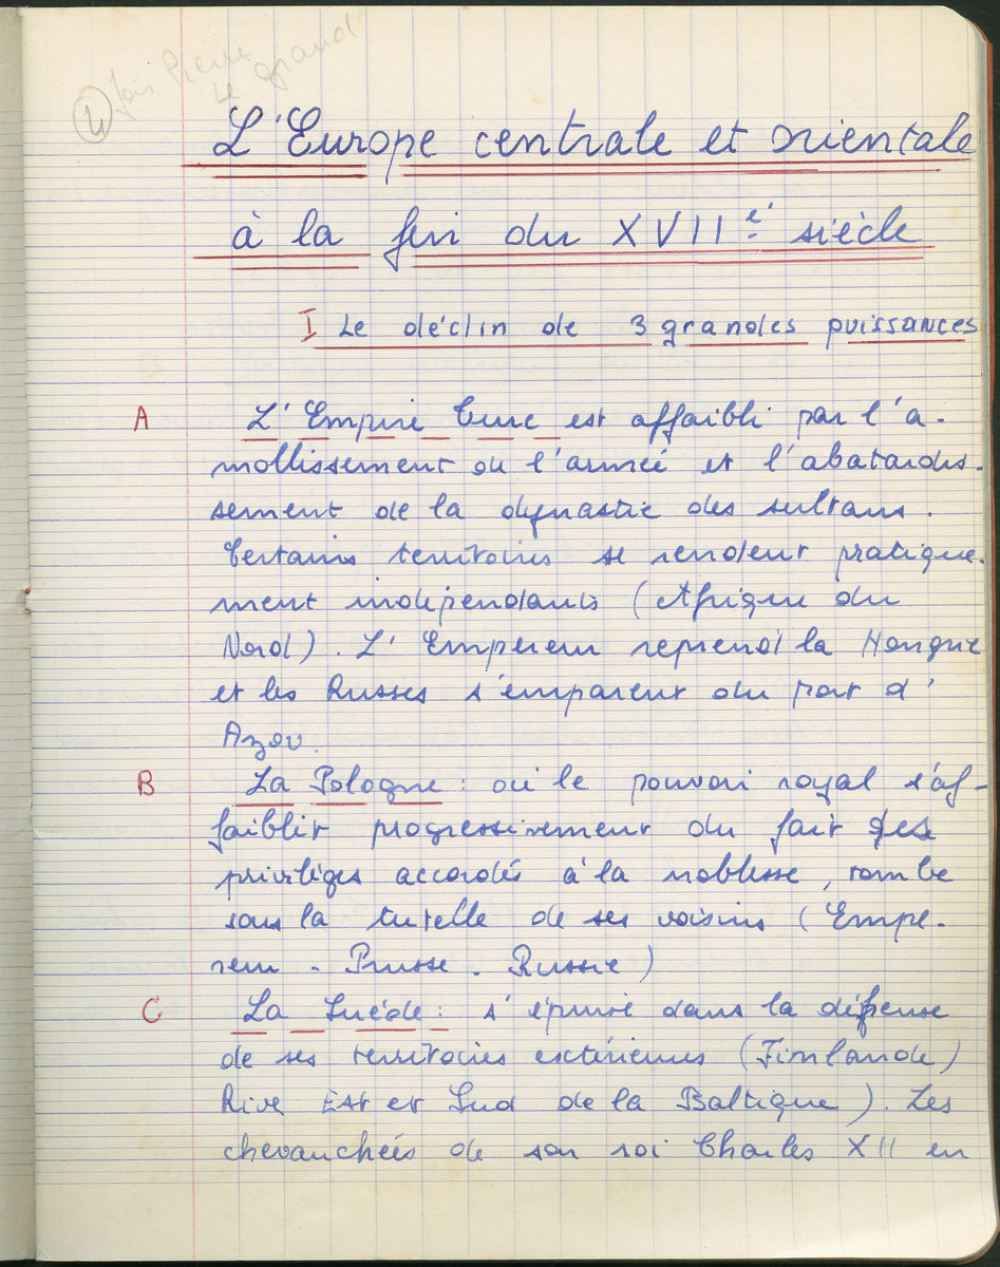 ④ fois Pierre
le grand
L'Europe centrale et orientale
à la fin du XVIIe siècle
I Le déclin de 3 grandes puissances
A L'Empire Turc est affaibli par l'a-
mollissement de l'armée et l'abatardis-
sement de la dynastie des sultans.
Certains territoires se rendent pratique-
ment indépendants (Afrique du
Nord). L'Empereur reprend la Hongrie
et les Russes s'emparent du port d'
Azov.
B La Pologne : où le pouvoir royal s'af-
faiblit progressivement du fait des
privilèges accordés à la noblesse, tombe
sous la tutelle de ses voisins (Empe-
reur - Prusse - Russie)
C La Suède : s'épuise dans la défense
de ses territoires extérieures (Finlande)
Rive Est et Sud de la Baltique). Les
chevauchées de son roi Charles XII en